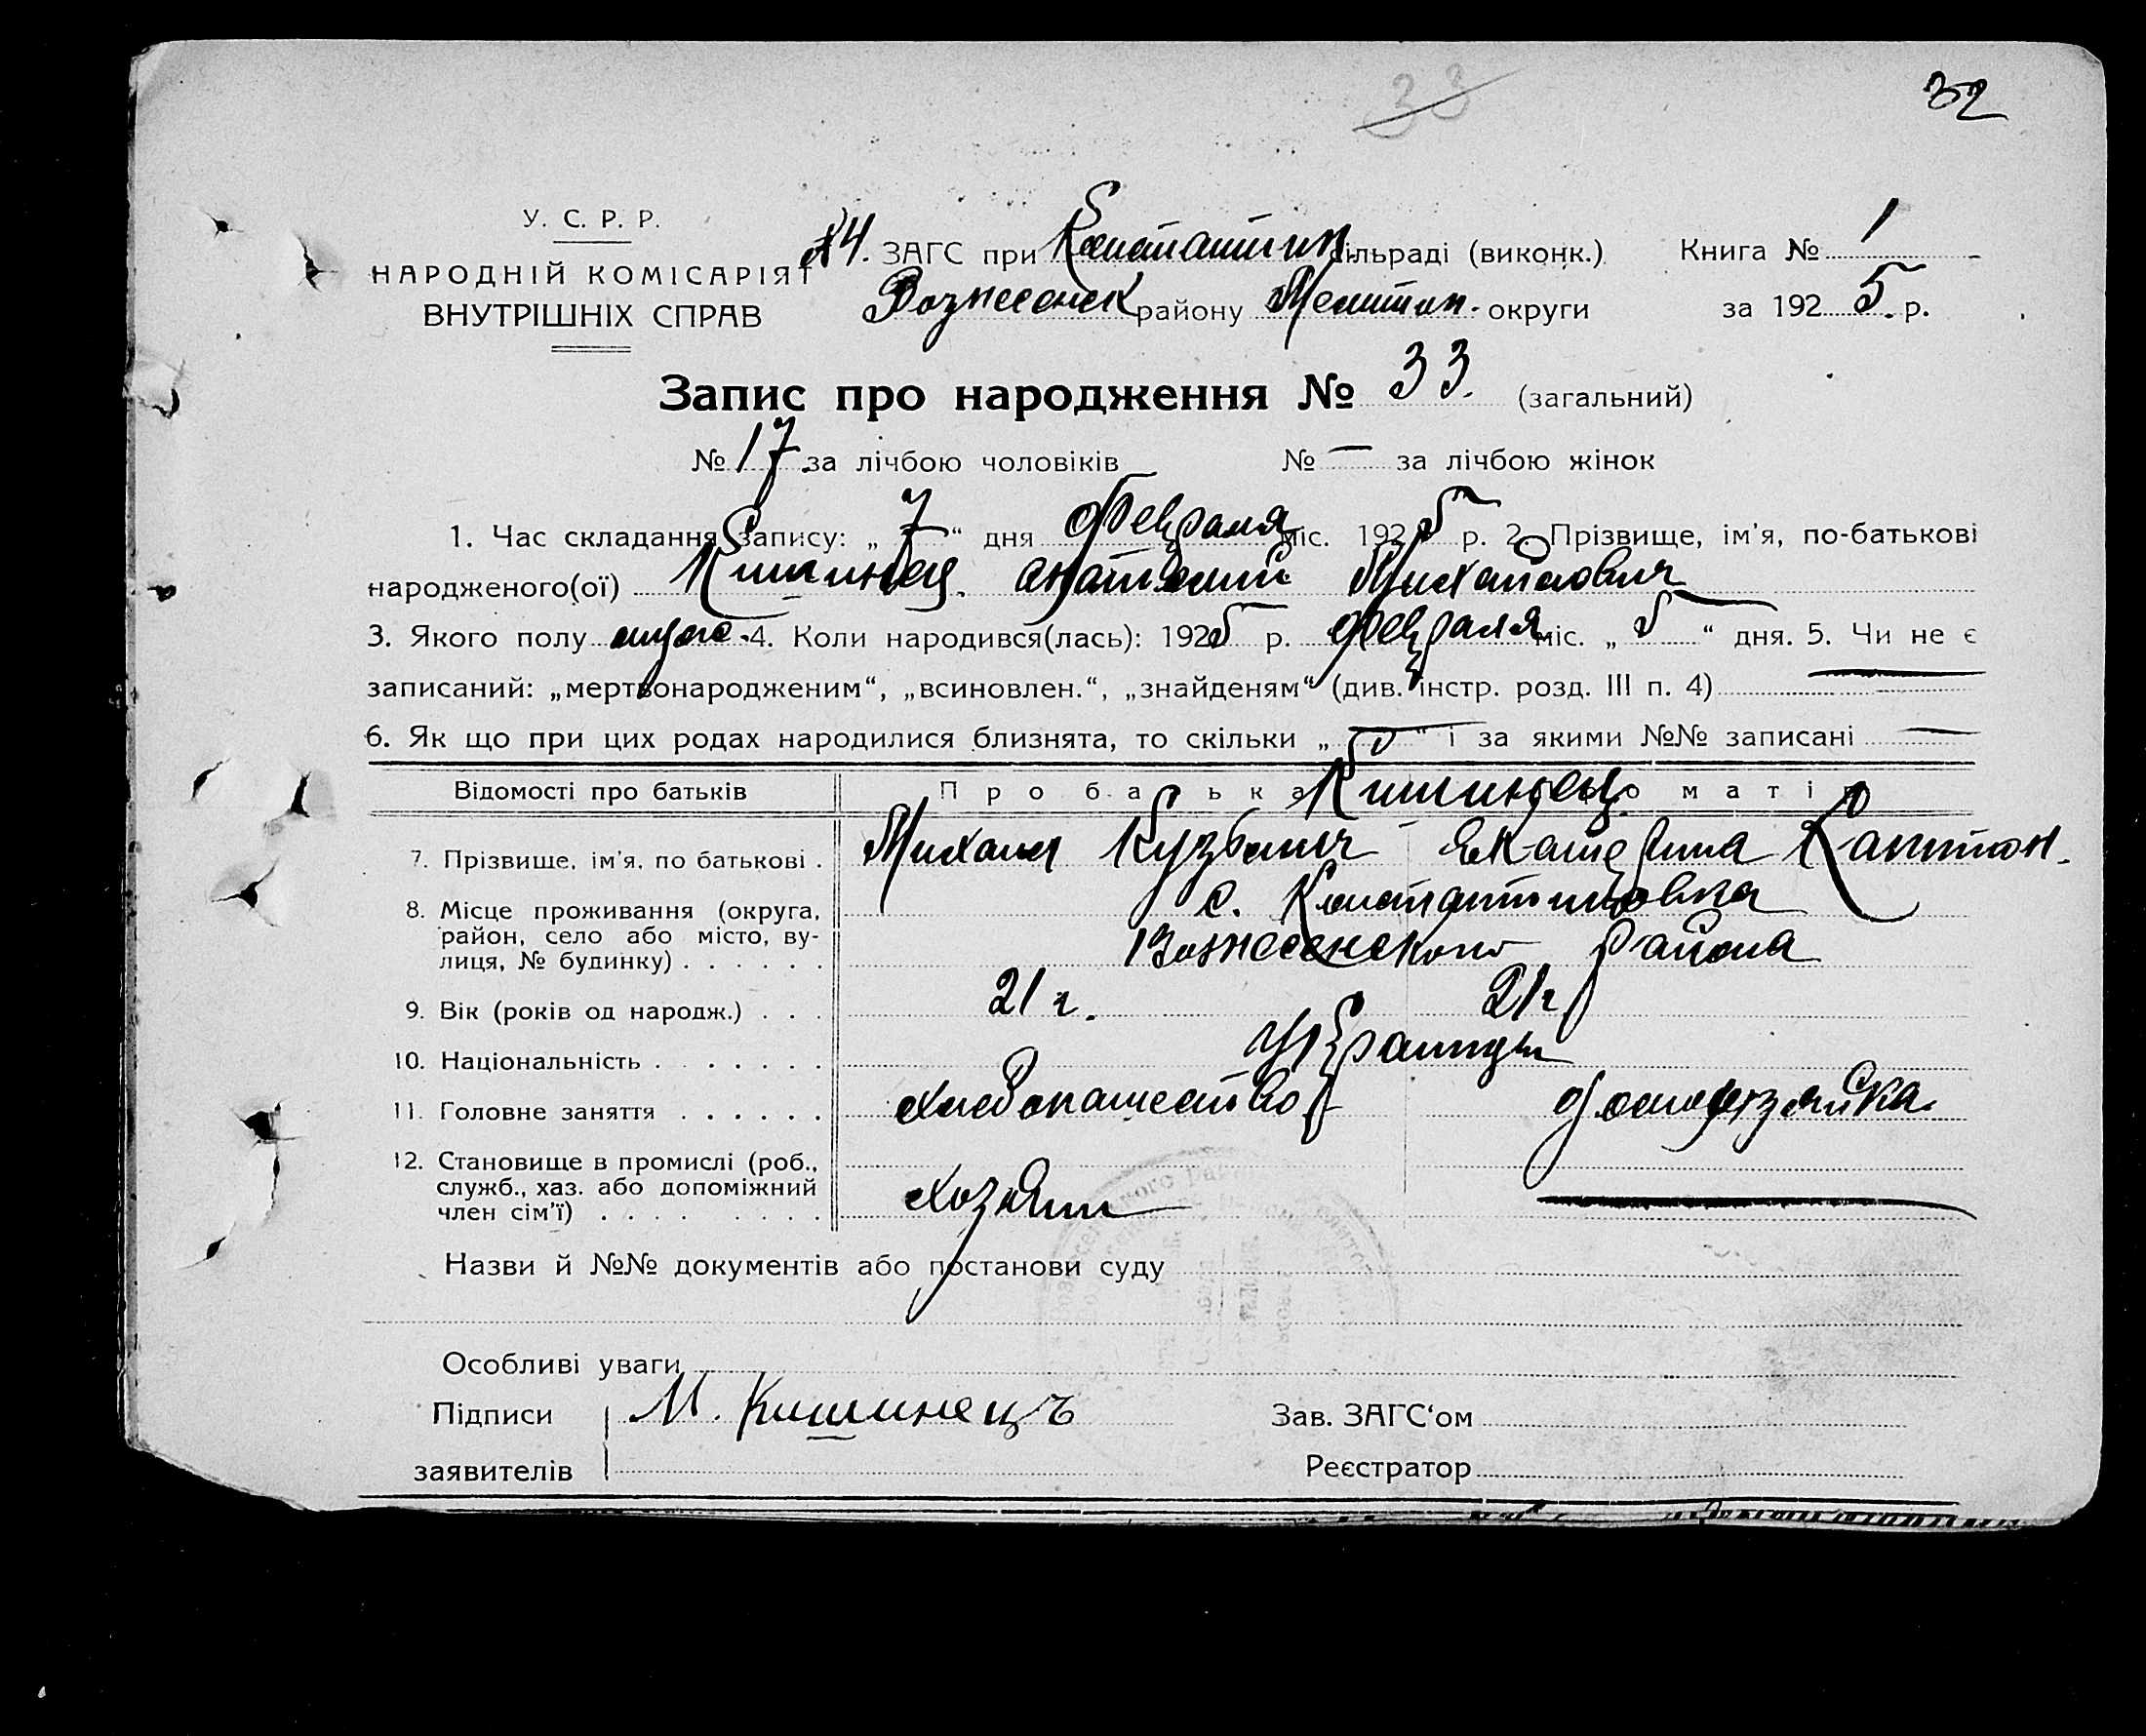 33
32
У. С. Р. Р.
НАРОДНІЙ КОМІСАРІЯТ
ВНУТРІШНІХ СПРАВ
ЗАГС при Константин. сільраді (виконк.) Книга № 1
Вознесенск району Мелитоп. округи за 1925 р.
Запис про народження № 33. (загальний)
№ 17 за лічбою чоловіків № — за лічбою жінок
1. Час складання запису: „ 7 “ дня Февраля міс. 1925 р. 2. Прізвище, ім'я, по-батькові
народженого(ої) Кишинец Анатолий Михайлович
3. Якого полу муж. 4. Коли народився(лась): 1925 р. Февраля міс. „ 5 “ дня. 5. Чи не є
записаний: „мертвонародженим“, „всиновлен.“, „знайденям“ (див. інстр. розд. III п. 4) —
6. Як що при цих родах народилися близнята, то скільки „ “ і за якими №№ записані —
Відомості про батьків Про батька Про матір
Кишинец
7. Прізвище, ім'я, по батькові . Михаил Кузьмич Екатерина Капитон.
8. Місце проживання (округа, район, село або місто, вулиця, № будинку) . . . . . . с. Константиновка
Вознесенского района
9. Вік (років од народж.) . . . 21 г. 21 г
10. Національність . . . . . . . Украинцы
11. Головне заняття . . . . . . Хлебопашество Домохозяйка.
12. Становище в промислі (роб., служб., хаз. або допоміжний член сім'ї) . . . . . . . . Хозяин —
Назви й №№ документів або постанови суду
Особливі уваги
Підписи М. Кишинецъ Зав. ЗАГС‘ом
заявителів Реєстратор